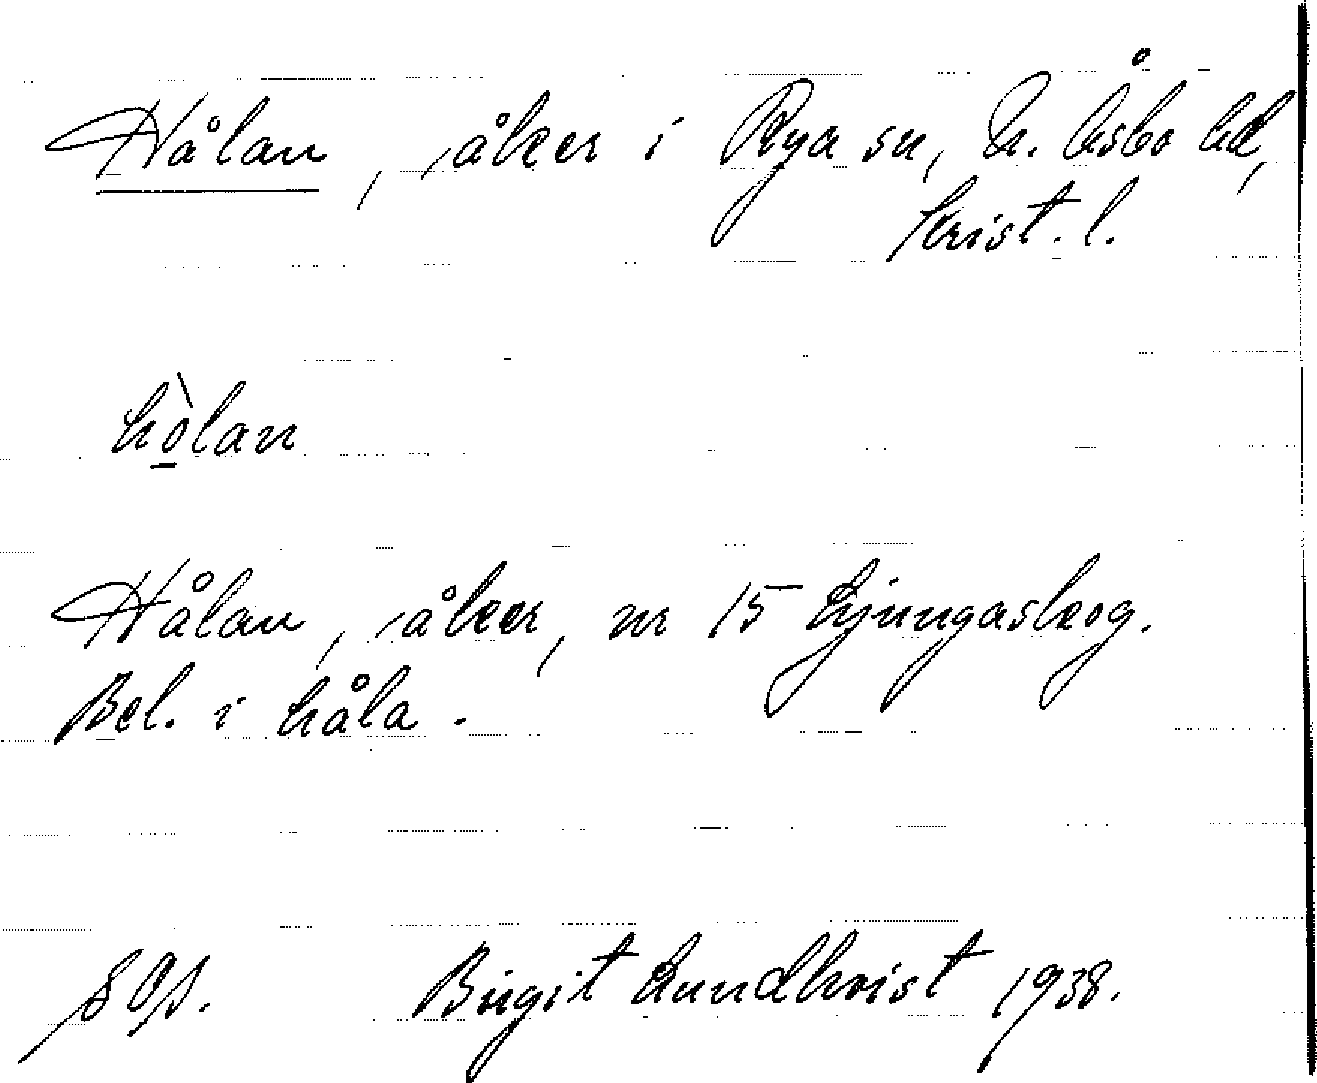 Hålan, åker i Rya sn, N. Åsbo hd,
Krist. l.
hò̲lan
Hålan, åker, nr 15 Ljungaskog.
Bel. i håla.
Birgit Lundkvist 1938.